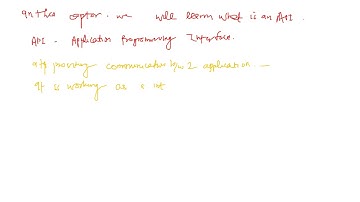 In this captor. we will learn what is an API.
API - Application Programming Interface.
providing communication b/w 2 application -
It is working as a int